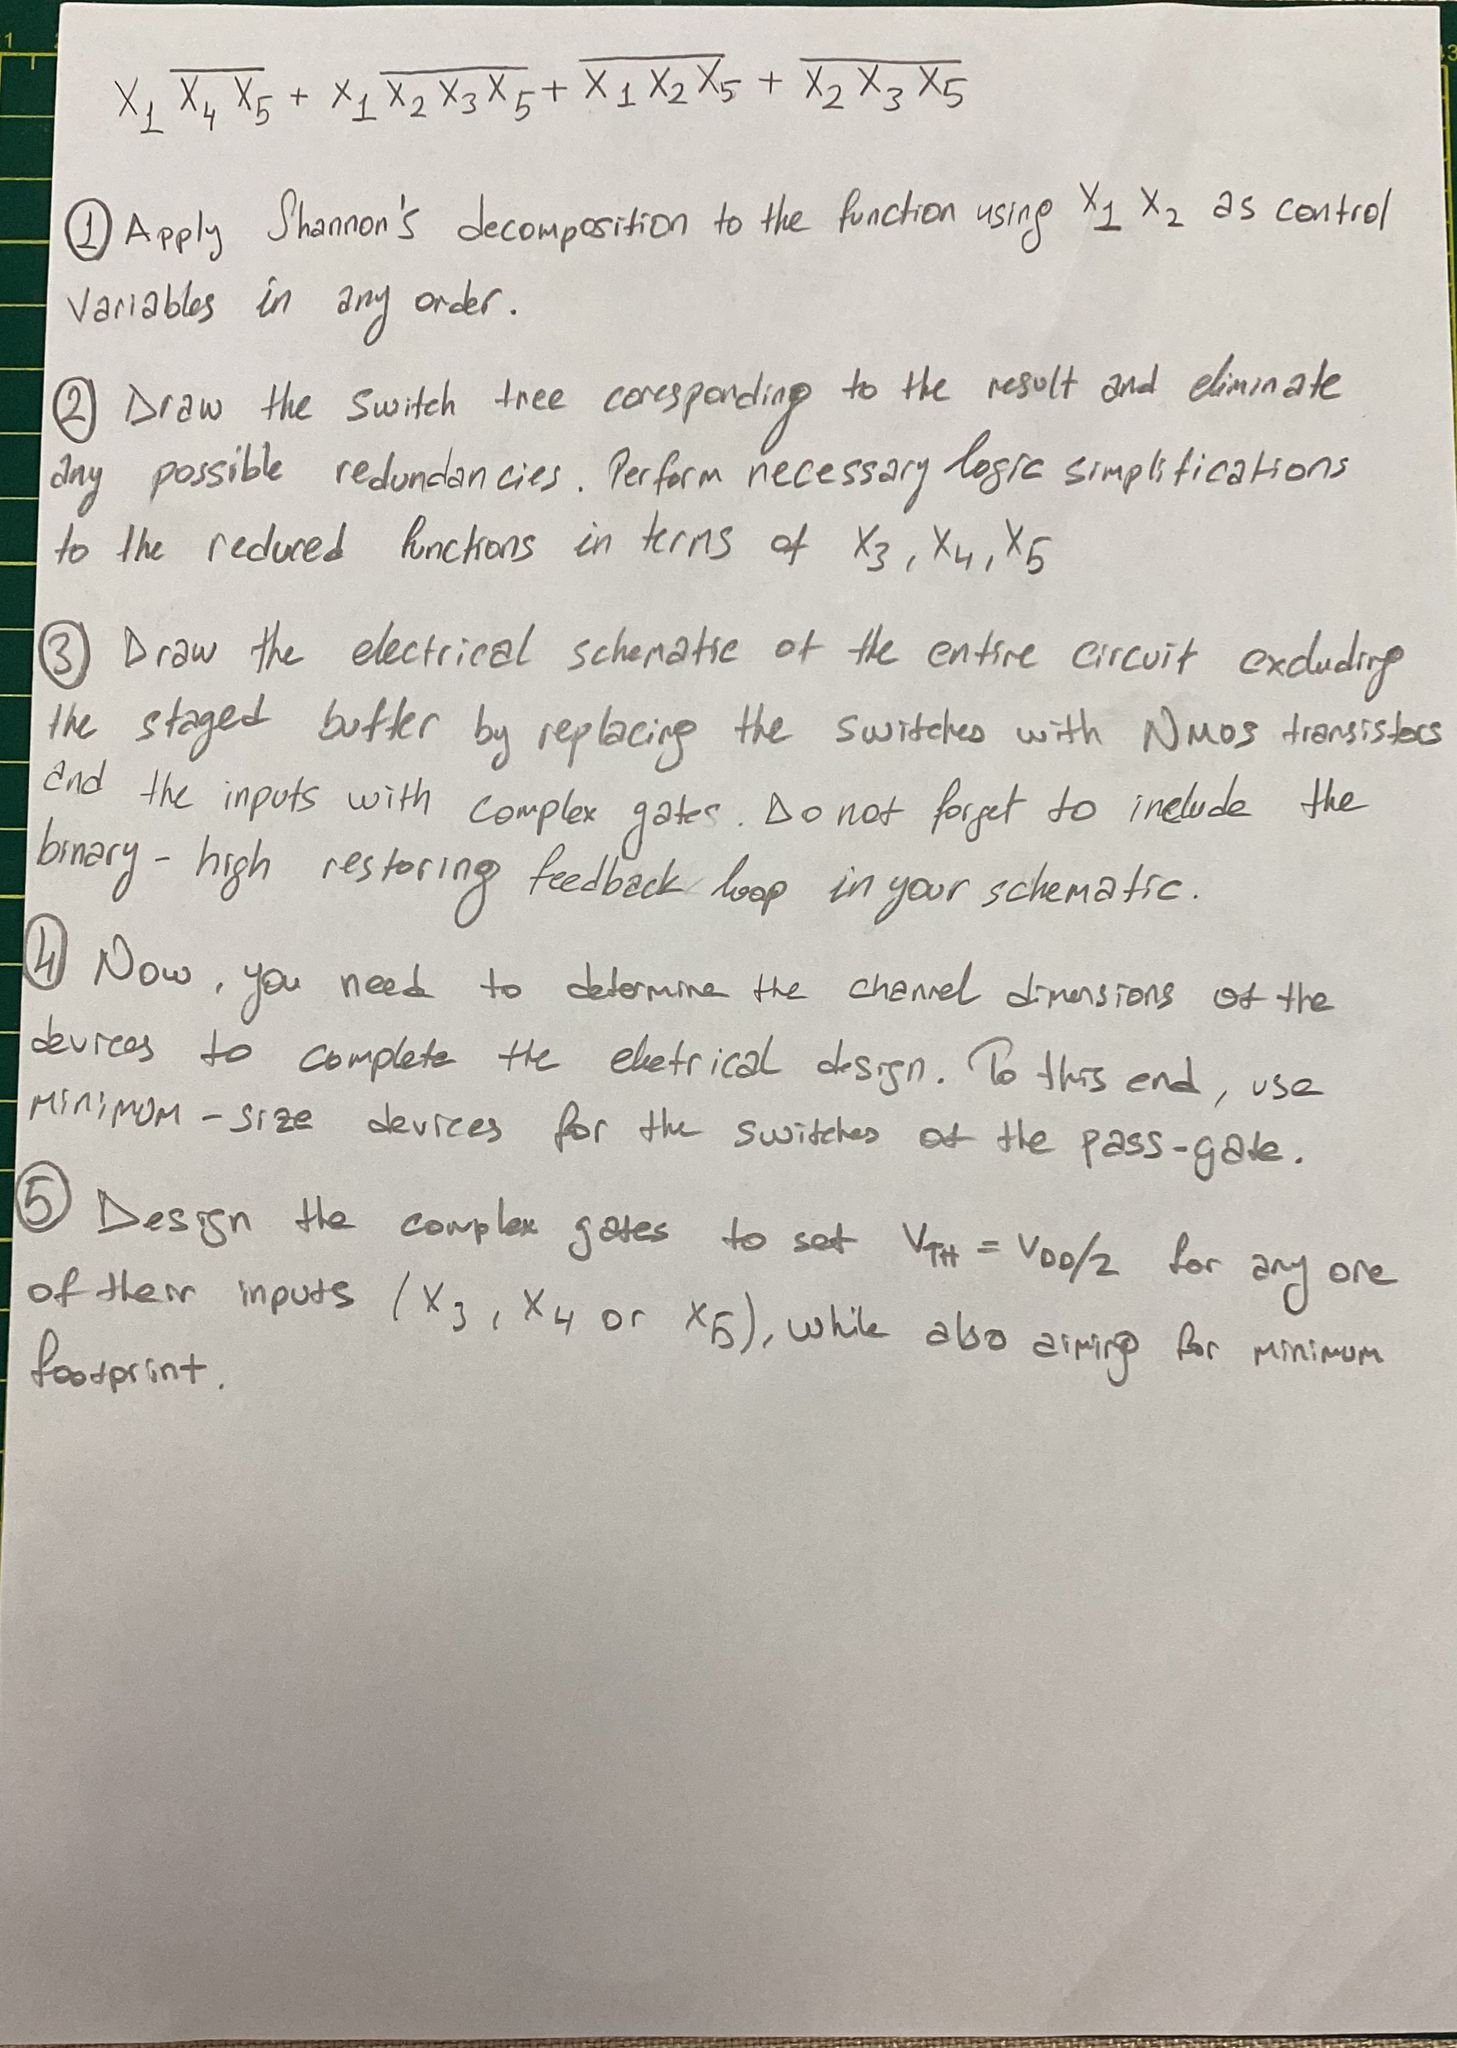 X₁ X̅₄̅ ̅X̅₅̅ + X₁ X̅₂̅ ̅X̅₃̅ ̅X̅₅̅ + X̅₁̅ ̅X̅₂̅ ̅X̅₅̅ + X̅₂̅ ̅X̅₃̅ ̅X̅₅̅
① Apply Shannon's decomposition to the function using X₁ X₂ as control
variables in any order.
② Draw the switch tree coresponding to the result and eliminate
any possible redundancies. Perform necessary logic simplifications
to the reduced functions in terms of X₃, X₄, X₅
③ Draw the electrical schematic of the entire circuit excluding
the staged buffer by replacing the switches with NMOS transistors
and the inputs with complex gates. Do not forget to include the
binary-high restoring feedback loop in your schematic.
④ Now, you need to determine the channel dimensions of the
devices to complete the eletrical design. To this end, use
minimum-size devices for the switches of the pass-gate.
⑤ Design the complex gates to set V_TH = V_DD/2 for any one
of their inputs (X₃, X₄ or X₅), while also aiming for minimum
footprint.
1
43